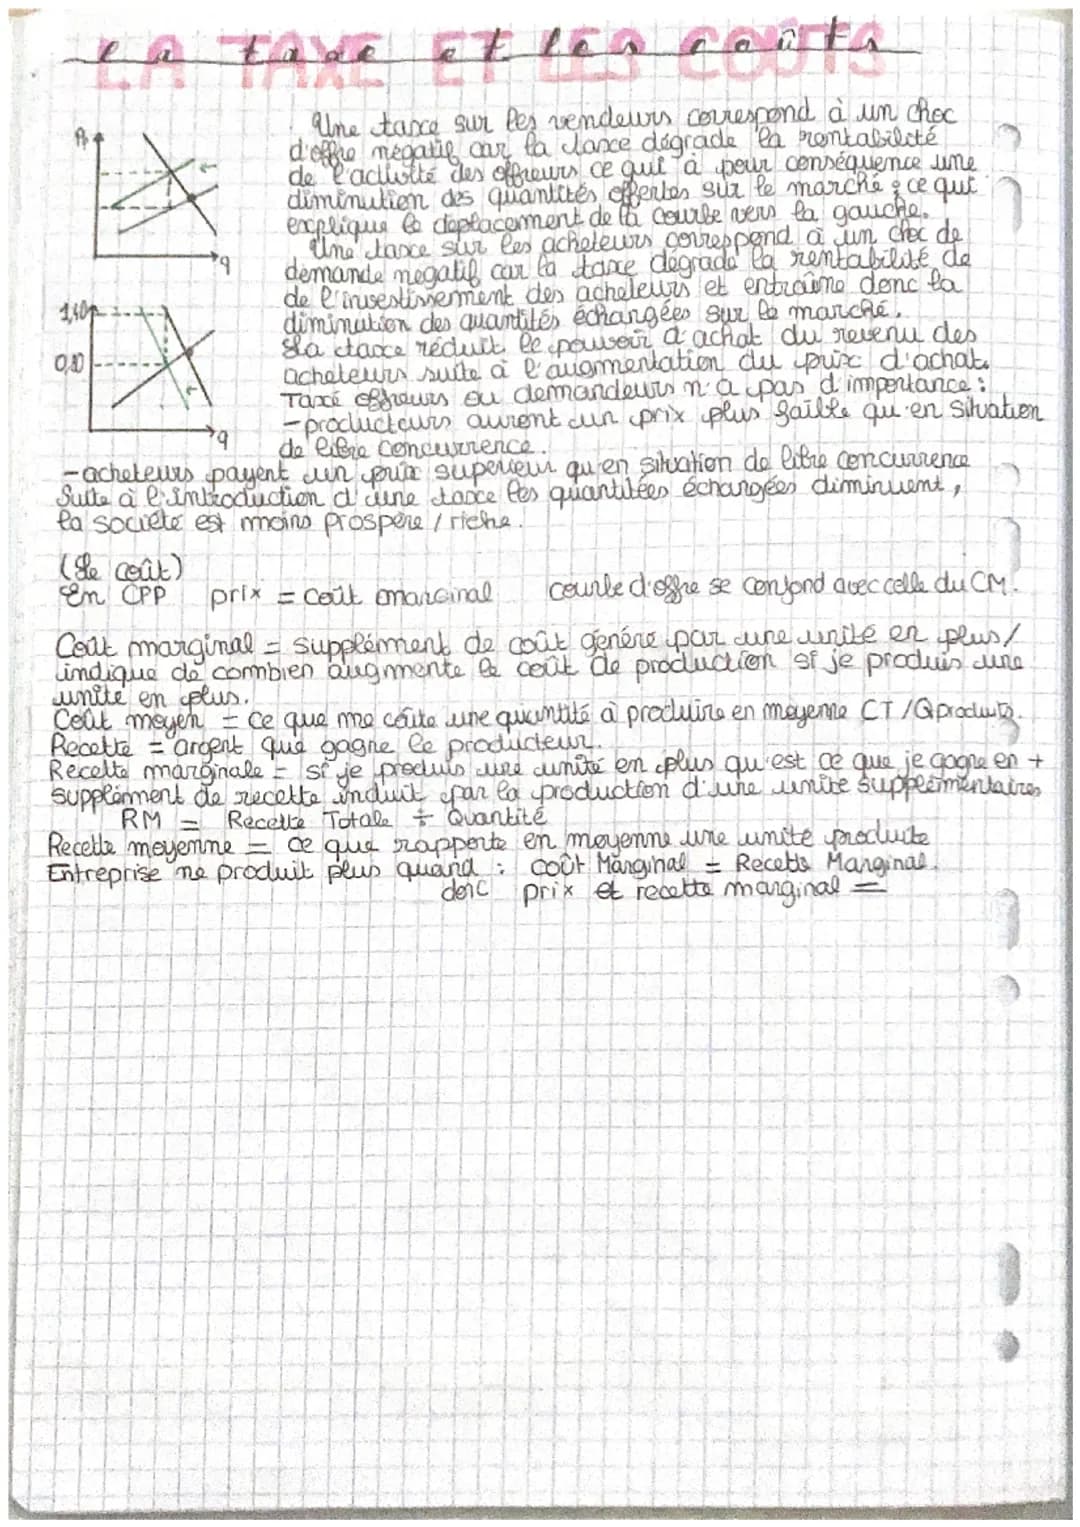 la taxe et les coûts
LA TAXE ET LES COÛTS
Une taxe sur les vendeurs correspond à un choc
d'offre négatif car la taxe dégrade la rentabilité
de l'activité des offreurs ce qui a pour conséquence une
diminution des quantités offertes sur le marché ; ce qui
explique le déplacement de la courbe vers la gauche.
Une taxe sur les acheteurs correspond à un choc de
demande négatif car la taxe dégrade la rentabilité de
de l'investissement des acheteurs et entraîne donc la
diminution des quantités échangées sur le marché.
La taxe réduit le pouvoir d'achat du revenu des
acheteurs suite à l'augmentation du prix d'achat.
Taxé offreurs ou demandeurs n'a pas d'importance :
- producteurs auront un prix plus faible qu'en situation
de libre concurrence.
- acheteurs payent un prix superieur qu'en situation de libre concurrence
Suite à l'introduction d'une taxe les quantitées échangées diminuent,
la société est moins prospère / riche.
P
q
1,40
0,80
q
(Le coût)
En CPP prix = coût marginal courbe d'offre se confond avec celle du CM.
Coût marginal = supplément de coût génére par une unité en plus/
indique de combien augmente le coût de production si je produis une
unité en plus.
Coût moyen = ce que me coûte une quantité à produire en moyenne CT/Qproduits.
Recette = argent que gagne le producteur.
Recette marginale = si je produis une unité en plus qu'est ce que je gagne en +
supplément de recette induit par la production d'une unité supplémentaires
RM = Recette Totale ÷ Quantité
Recette moyenne = ce que rapporte en moyenne une unité produite
Entreprise ne produit plus quand : coût Marginal = Recette Marginal.
donc prix et recette marginal =